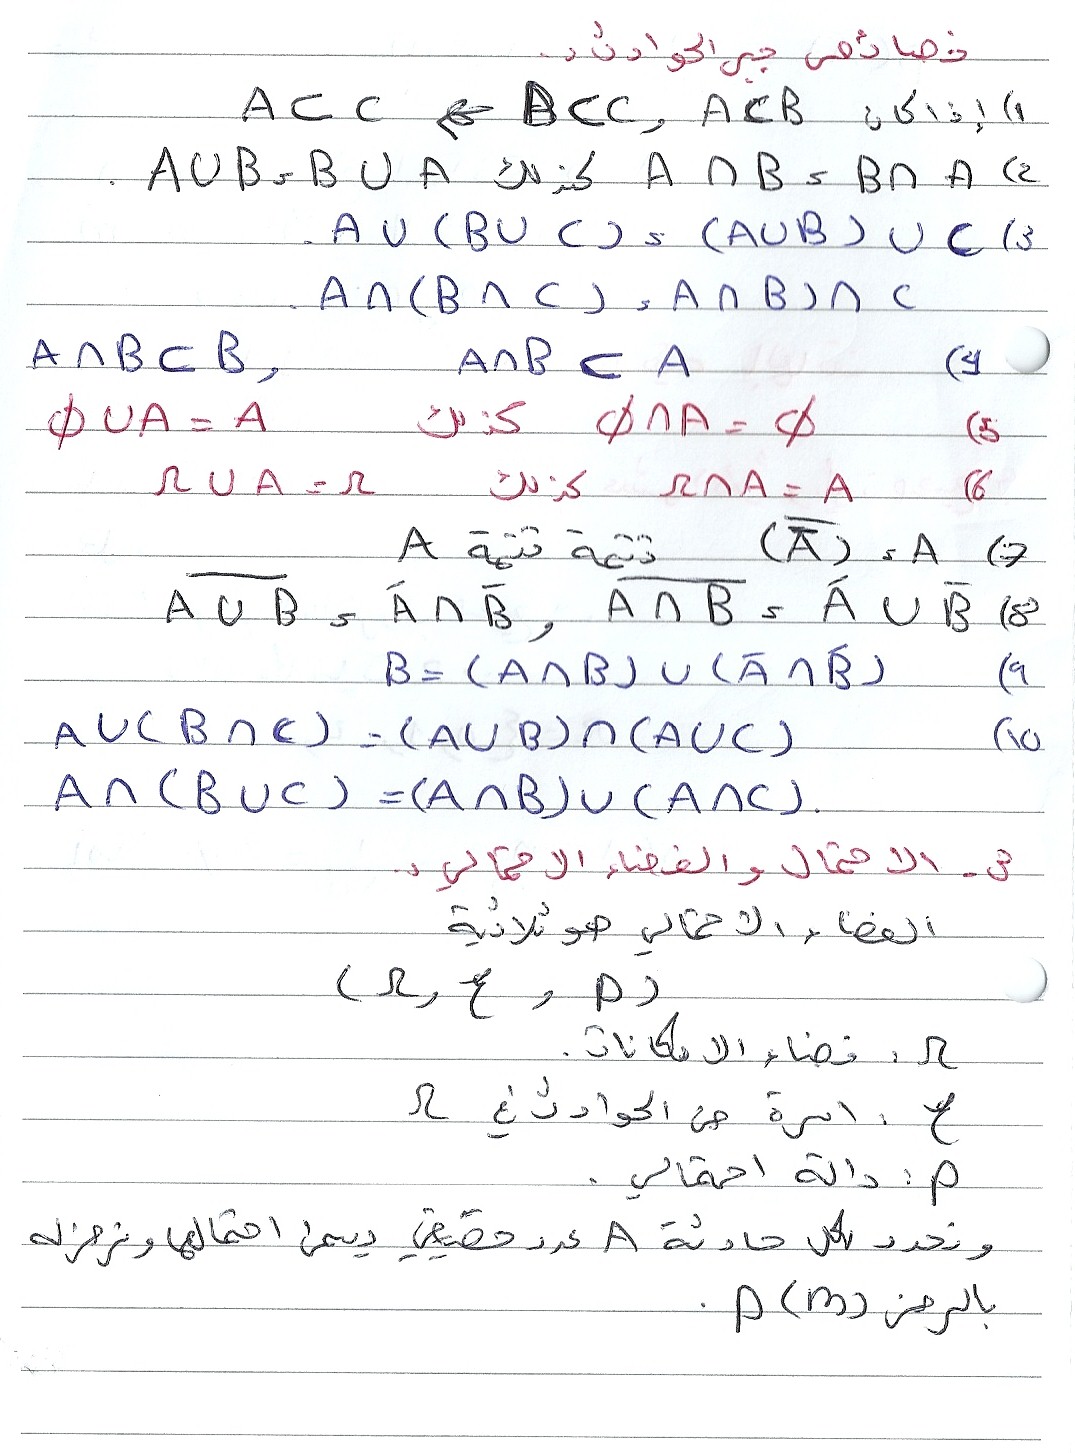 خصائص جبر الحوادث:
1) إذا كان A⊂B , B⊂C ⇐ A⊂C
2) A ∩ B = B ∩ A كذلك A∪B = B ∪ A .
3) A ∪ (B ∪ C) = (A∪B) ∪ C .
A ∩ (B ∩ C) = A ∩ B) ∩ C .
4) A∩B ⊂ A , A∩B ⊂ B
5) ϕ∩A = ϕ كذلك ϕ∪A = A
6) Ω∩A = A كذلك Ω∪A = Ω
7) (A̅)̅ = A تتمة تتمة A
8) A̅∪̅B̅ = A̅ ∩ B̅ , A̅∩̅B̅ = A̅ ∪ B̅
9) B = (A∩B) ∪ (A̅ ∩ B̅)
10) A∪(B∩C) = (A∪B)∩(A∪C)
A∩(B∪C) = (A∩B)∪(A∩C).
3- الاحتمال والفضاء الاحتمالي:
الفضاء الاحتمالي هو ثلاثية
(Ω, ℰ, p)
Ω : فضاء الامكانات .
ℰ : اسرة من الحوادث في Ω
p : دالة احتمالي .
ونحدد لكل حادثة A عدد حقيقي يسمى احتمالها ونرمز له
بالرمز p(m) .